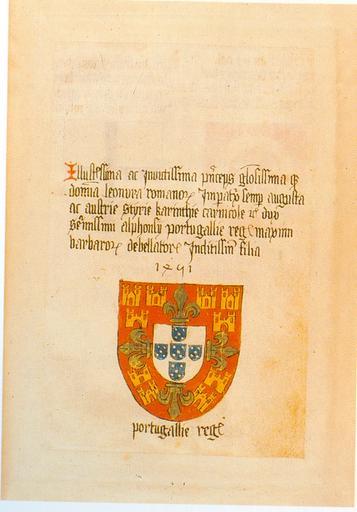 Illustrissima ac Invictissima princeps gloriosissima q̄
domina leonora romanoꝝ Impatx̄ semp augusta
ac austrie styrie karinthie carniole ꝛc̄ dux
serenissimi alphonsy portugallie reg̃ maximi
barbaroꝝ debellatore Inclitissimi filia
1491
portugallie reg̃